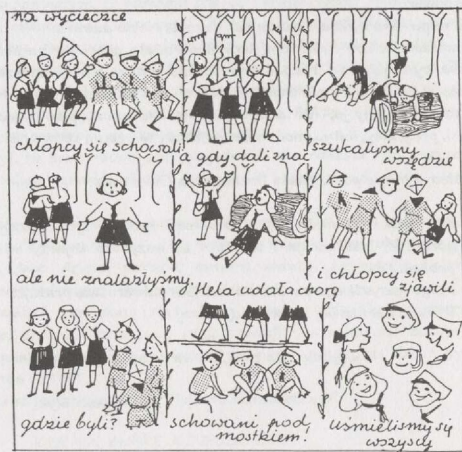 na wycieczce
chłopcy się schowali
a gdy dali znać
szukałyśmy
wszędzie
ale nie znalazłyśmy.
Hela udała chorą
i chłopcy się
zjawili
gdzie byli?
schowani pod
mostkiem!
uśmieliśmy się
wszyscy